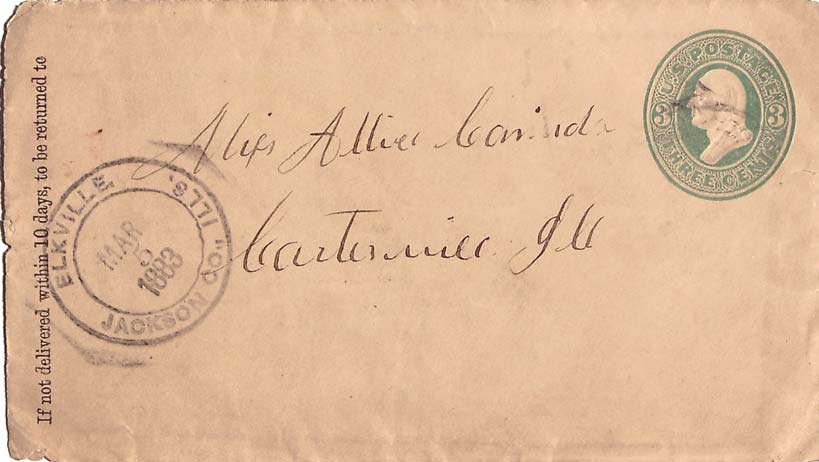 If not delivered within 10 days, to be returned to
ELKVILLE, ILLS.
JACKSON CO.,
MAR
5
1883
U.S. POSTAGE
3 3
THREE CENTS
Miss Allice
Carterville Ill